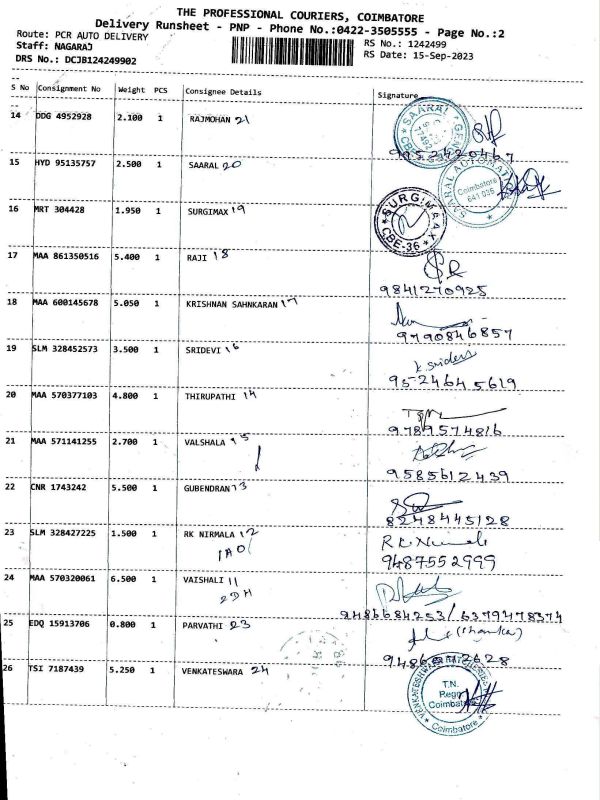 THE PROFESSIONAL COURIERS, COIMBATORE
Delivery Runsheet - PNP - Phone No.:0422-3505555 - Page No.:2
Route: PCR AUTO DELIVERY RS No.: 1242499
Staff: NAGARAJ RS Date: 15-Sep-2023
DRS No.: DCJB124249902
S No Consignment No Weight PCS Consignee Details Signature
14 DDG 4952928 2.100 1 RAJMOHAN 21
15 HYD 95135757 2.500 1 SAARAL 20
SAARAL AUTOMATI
Coimbatore
641 035
16 MRT 304428 1.950 1 SURGIMAX 19
SURGIMAAX
CBE-36
17 MAA 861350516 5.400 1 RAJI 18
9841270925
18 MAA 600145678 5.050 1 KRISHNAN SAHNKARAN 17
9790846857
19 SLM 328452573 3.500 1 SRIDEVI 16
K Sridevi
9524645619
20 MAA 570377103 4.800 1 THIRUPATHI 14
9789574816
21 MAA 571141255 2.700 1 VALSHALA 15
9585612439
22 CNR 1743242 5.500 1 GUBENDRAN 13
8248445128
23 SLM 328427225 1.500 1 RK NIRMALA 12
9487552999
24 MAA 570320061 6.500 1 VAISHALI 11
2DH
9486684253/6379478374
25 EDQ 15913706 0.800 1 PARVATHI 23
26 TSI 7187439 5.250 1 VENKATESWARA 24
T.N.
Regn
Coimbatore
Coimbatore